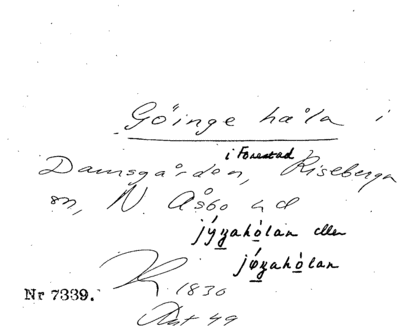 Göinge håla i
i Forestad
Damsgården, Riseberga
sn, N. Åsbo hd
jýꝫahòlan eller
jǿꝫahòlan
R 1830
Nr 7339.
49